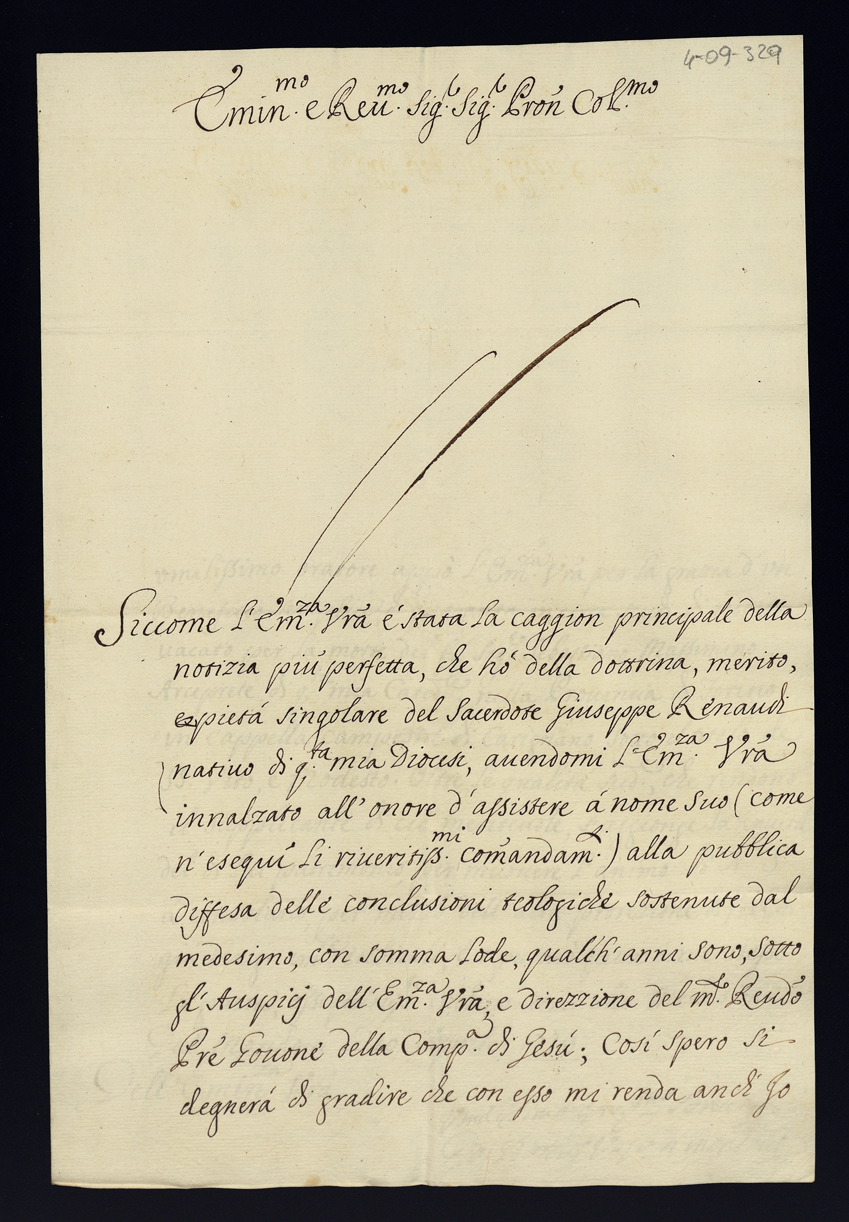 4-09-329
Emin.mo e Reu.mo Sig.r Sig.r Pron Col.mo
Siccome L'Em.za Vrã é stata La caggion principale della
notizia piú perfetta, che hó della dottrina, merito,
e pietá singolare del Sacerdote Giuseppe Renaudi
natiuo di q.ta mia Diocesi, auendomi L'Em.za Vrã
innalzato all'onore d'assistere á nome Suo (come
n'eseguí Li riueritiss.mi comandam.ti) alla pubblica
diffesa delle conclusioni teologiche sostenute dal
medesimo, con somma Lode, qualch'anni sono, sotto
gl'Auspicj dell'Em.za Vrã, e direzzione del m.to Reudo
Prê Gouone della Comp.a di Gesú; Cosí spero si
degnerá di gradire che con esso mi renda anch'Jo